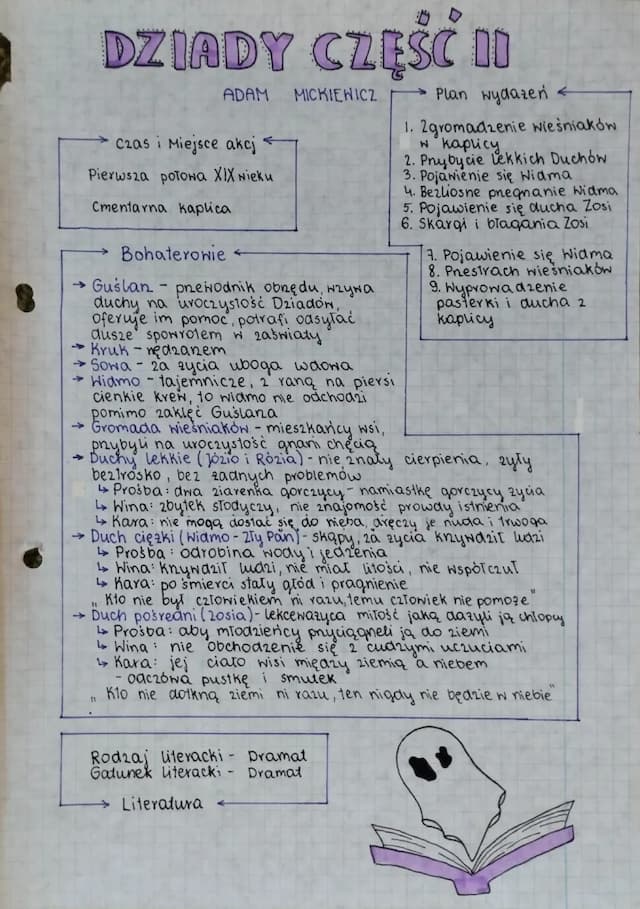 DZIADY CZĘŚĆ II
ADAM MICKIEWICZ
Czas i Miejsce akcj
Pierwsza połowa XIX wieku
Cmentarna kaplica
Plan wydażeń
1. Zgromadzenie wieśniaków
w kaplicy
2. Przybycie Lekkich Duchów
3. Pojawienie się Widma
4. Bezlitosne przegnanie Widma
5. Pojawienie się ducha Zosi
6. Skargi i błagania Zosi
7. Pojawienie się Widma
8. Przestrach wieśniaków
9. Wyprowadzenie
pasterki i ducha z
kaplicy
Bohaterowie
→ Guślarz - przewodnik obrzędu, wzywa
duchy na uroczystość Dziadów,
oferuje im pomoc, potrafi odsyłać
dusze spowrotem w zaświaty
→ Kruk - nędzarzem
→ Sowa - za życia uboga wdowa
→ Widmo - tajemnicze, z raną na piersi
cienkie krew, to widmo nie odchodzi
pomimo zaklęć Guślarza
→ Gromada wieśniaków - mieszkańcy wsi,
przybyli na uroczystość gnani chęcią
→ Duchy lekkie (Józio i Rózia) - nie znały cierpienia, żyły
beztrosko, bez żadnych problemów
↳ Prośba: dwa ziarenka gorczycy - namiastkę gorczycy życia
↳ Wina: zbytek słodyczy, nie znajomość prawdy istnienia
↳ Kara: nie mogą dostać się do nieba, dręczy je nuda i trwoga
→ Duch ciężki (Widmo - Zły Pan) - skąpy, za życia krzywdził ludzi
↳ Prośba: odrobina wody i jedzenia
↳ Wina: krzywdził ludzi, nie miał litości, nie współczuł
↳ Kara: po śmierci stały głód i pragnienie
„Kto nie był człowiekiem ni razu, temu człowiek nie pomoże"
→ Duch pośredni (Zosia) - lekceważyca miłość jaką dażyli ją chłopcy
↳ Prośba: aby młodzieńcy przyciągneli ją do ziemi
↳ Wina: nie obchodzenie się z cudzymi uczuciami
↳ Kara: jej ciało wisi między ziemią a niebem
- odczówa pustkę i smutek
„Kto nie dotkną ziemi ni razu, ten nigdy nie będzie w niebie"
Rodzaj literacki - Dramat
Gatunek literacki - Dramat
Literatura